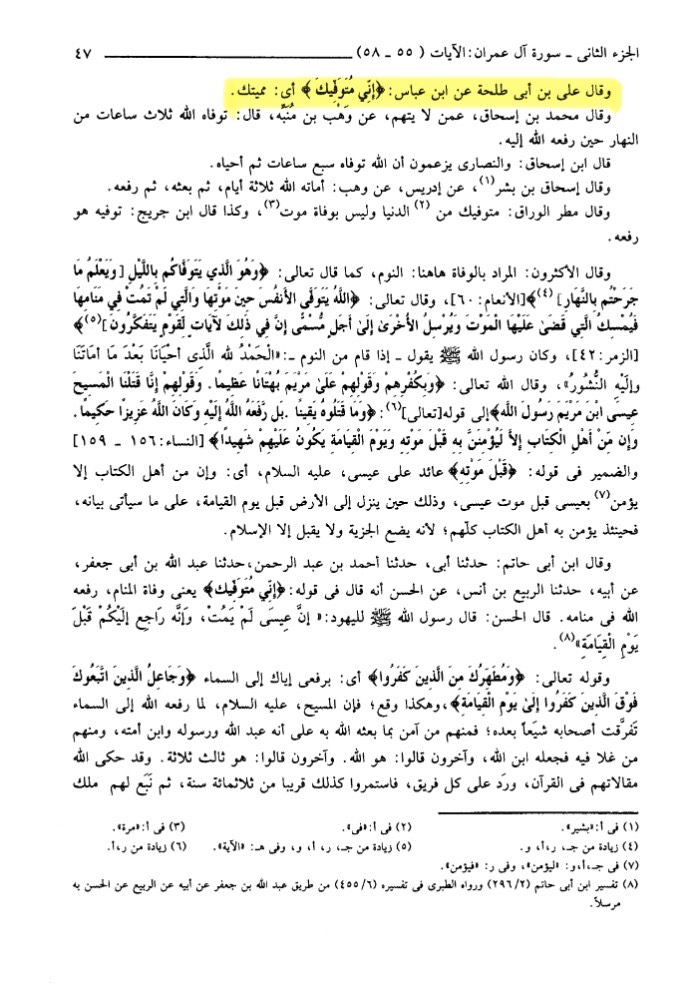 الجزء الثانى ـ سورة آل عمران: الآيات ( ٥٥ ـ ٥٨ ) ـــــــــــــ ٤٧
وقال على بن أبى طلحة عن ابن عباس: ﴿إِنِّي مُتَوَفِّيكَ﴾ أى: مميتك.
وقال محمد بن إسحاق، عمن لا يتهم، عن وَهْب بن مُنَبِّه، قال: توفاه الله ثلاث ساعات من
النهار حين رفعه الله إليه.
قال ابن إسحاق: والنصارى يزعمون أن الله توفاه سبع ساعات ثم أحياه.
وقال إسحاق بن بشر(١)، عن إدريس، عن وهب: أماته الله ثلاثة أيام، ثم بعثه، ثم رفعه.
وقال مطر الوراق: متوفيك من (٢) الدنيا وليس بوفاة موت(٣)، وكذا قال ابن جريج: توفيه هو
رفعه.
وقال الأكثرون: المراد بالوفاة هاهنا: النوم، كما قال تعالى: ﴿وَهُوَ الَّذِي يَتَوَفَّاكُم بِاللَّيْلِ [وَيَعْلَمُ مَا
جَرَحْتُم بِالنَّهَارِ] (٤)﴾[الأنعام: ٦٠]، وقال تعالى: ﴿اللَّهُ يَتَوَفَّى الأَنفُسَ حِينَ مَوْتِهَا وَالَّتِي لَمْ تَمُتْ فِي مَنَامِهَا
فَيُمْسِكُ الَّتِي قَضَىٰ عَلَيْهَا الْمَوْتَ وَيُرْسِلُ الأُخْرَىٰ إِلَىٰ أَجَلٍ مُّسَمًّى إِنَّ فِي ذَلِكَ لآيَاتٍ لِّقَوْمٍ يَتَفَكَّرُونَ](٥)﴾
[الزمر: ٤٢]، وكان رسول الله ﷺ يقول ـ إذا قام من النوم ـ: «الْحَمْدُ لله الَّذِى أحْيَانَا بَعْدَ مَا أمَاتَنَا
وإلَيْهِ النُّشُورُ»، وقال الله تعالى: ﴿وَبِكُفْرِهِمْ وَقَوْلِهِمْ عَلَىٰ مَرْيَمَ بُهْتَانًا عَظِيمًا . وَقَوْلِهِمْ إِنَّا قَتَلْنَا الْمَسِيحَ
عِيسَى ابْنَ مَرْيَمَ رَسُولَ اللَّهِ﴾ إلى قوله[تعالى](٦): ﴿وَمَا قَتَلُوهُ يَقِينًا . بَل رَّفَعَهُ اللَّهُ إِلَيْهِ وَكَانَ اللَّهُ عَزِيزًا حَكِيمًا .
وَإِن مِّنْ أَهْلِ الْكِتَابِ إِلاَّ لَيُؤْمِنَنَّ بِهِ قَبْلَ مَوْتِهِ وَيَوْمَ الْقِيَامَةِ يَكُونُ عَلَيْهِمْ شَهِيدًا﴾ [النساء: ١٥٦ ـ ١٥٩]
والضمير فى قوله: ﴿قَبْلَ مَوْتِهِ﴾ عائد على عيسى، عليه السلام، أى: وإن من أهل الكتاب إلا
يؤمن(٧) بعيسى قبل موت عيسى، وذلك حين ينزل إلى الأرض قبل يوم القيامة، على ما سيأتى بيانه،
فحينئذ يؤمن به أهل الكتاب كلّهم؛ لأنه يضع الجزية ولا يقبل إلا الإسلام.
وقال ابن أبى حاتم: حدثنا أبى، حدثنا أحمد بن عبد الرحمن، حدثنا عبد الله بن أبى جعفر،
عن أبيه، حدثنا الربيع بن أنس، عن الحسن أنه قال فى قوله: ﴿إِنِّي مُتَوَفِّيكَ﴾ يعنى وفاة المنام، رفعه
الله فى منامه. قال الحسن: قال رسول الله ﷺ لليهود: «إنَّ عِيسَى لَمْ يَمُتْ، وَإنَّه رَاجِع إلَيْكُمْ قَبْلَ
يَوْمِ الْقِيَامَةِ»(٨).
وقوله تعالى: ﴿وَمُطَهِّرُكَ مِنَ الَّذِينَ كَفَرُوا﴾ أى: برفعى إياك إلى السماء ﴿وَجَاعِلُ الَّذِينَ اتَّبَعُوكَ
فَوْقَ الَّذِينَ كَفَرُوا إِلَىٰ يَوْمِ الْقِيَامَةِ﴾، وهكذا وقع؛ فإن المسيح، عليه السلام، لما رفعه الله إلى السماء
تَفَرَّقت أصحابه شيَعًا بعده؛ فمنهم من آمن بما بعثه الله به على أنه عبد الله ورسوله وابن أمته، ومنهم
من غلا فيه فجعله ابن الله، وآخرون قالوا: هو الله. وآخرون قالوا: هو ثالث ثلاثة. وقد حكى الله
مقالاتهم فى القرآن، وردّ على كل فريق، فاستمروا كذلك قريبا من ثلاثمائة سنة، ثم نَبَع لهم ملك
(١) فى أ: «بشير». (٢) فى أ: «فى». (٣) فى أ: «مرة».
(٤) زيادة من جـ، ر، أ، و. (٥) زيادة من جـ، ر، أ، و، وفى هـ: «الآية». (٦) زيادة من ر، أ.
(٧) فى جـ، أ، و: «ليؤمن»، وفى ر: «فيؤمن».
(٨) تفسير ابن أبى حاتم (٢٩٦/٢) ورواه الطبرى فى تفسيره (٤٥٥/٦) من طريق عبد الله بن جعفر عن أبيه عن الربيع عن الحسن به
مرسلاً.